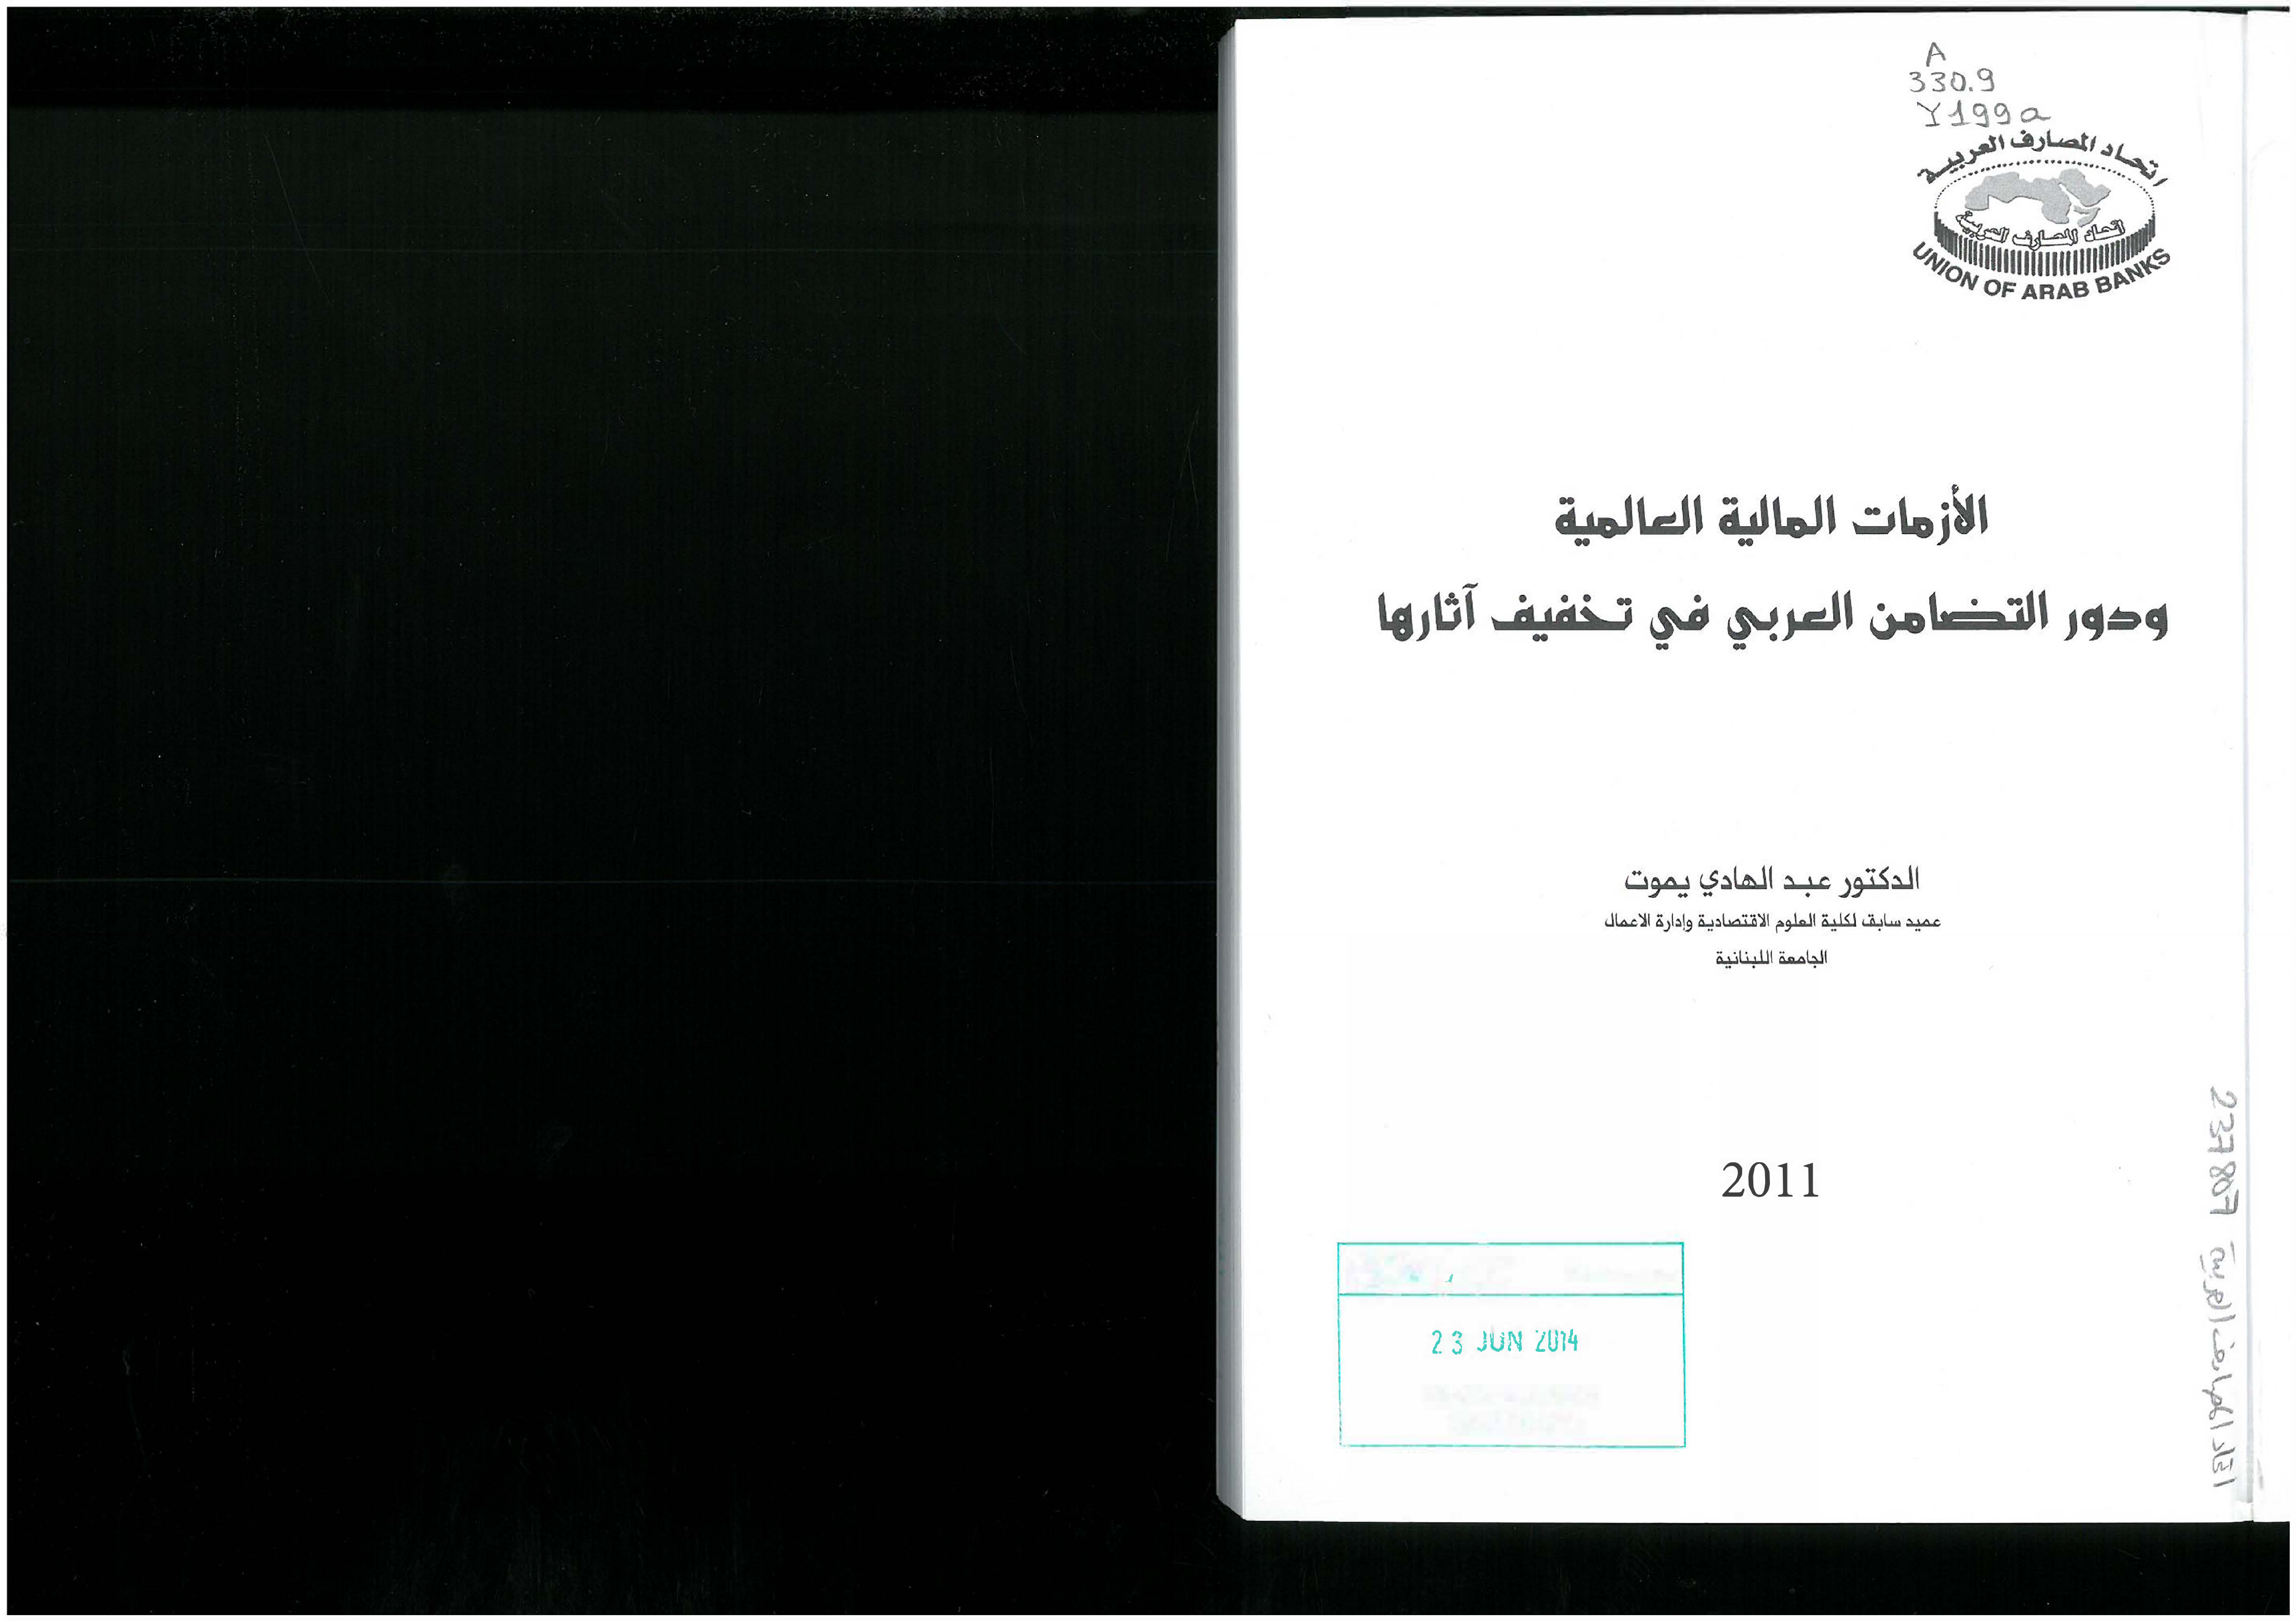 A
330.9
Y199a
اتحاد المصارف العربية
اتحاد المصارف العربية
UNION OF ARAB BANKS
الأزمات المالية العالمية
ودور التضامن العربي في تخفيف آثارها
الدكتور عبد الهادي يموت
عميد سابق لكلية العلوم الاقتصادية وإدارة الاعمال
الجامعة اللبنانية
2011
23 JUN 2014
237807 اتحاد المصارف العربية